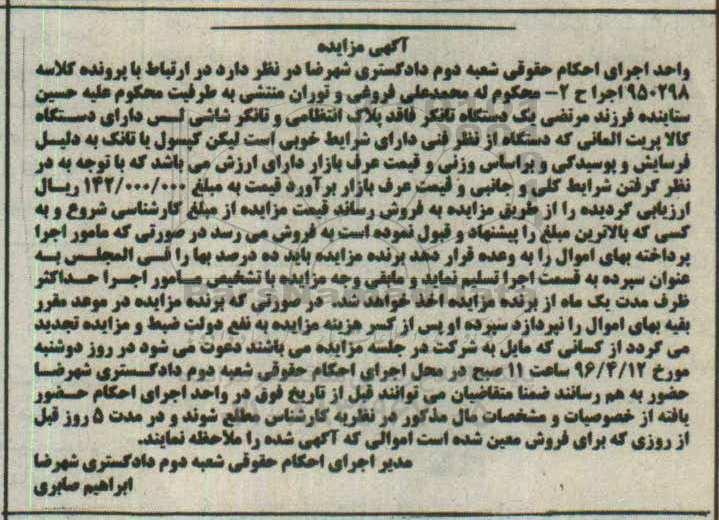 آگهی مزایده
واحد اجرای احکام حقوقی شعبه دوم دادگستری شهرضا در نظر دارد در ارتباط با پرونده کلاسه
۹۵۰۲۹۸ اجرا ح ۲- محکوم له محمدعلی فروغی و توران منتشی به طرفیت محکوم علیه حسین
ستاینده فرزند مرتضی یک دستگاه تانکر فاقد پلاک انتظامی و تانکر شاشی لس دارای دستگاه
کالا پریت المانی که دستگاه از نظر فنی دارای شرایط خوبی است لیکن کپسول یا تانک به دلیل
فرسایش و پوسیدگی و براساس وزنی و قیمت عرف بازار دارای ارزش می باشد که با توجه به در
نظر گرفتن شرایط کلی و جانبی و قیمت عرف بازار برآورد قیمت به مبلغ ۱۴۲/۰۰۰/۰۰۰ ریال
ارزیابی گردیده را از طریق مزایده به فروش رساند قیمت مزایده از مبلغ کارشناسی شروع و به
کسی که بالاترین مبلغ را پیشنهاد و قبول نموده است به فروش می رسد در صورتی که مامور اجرا
پرداخته بهای اموال را به وعده قرار دهد برنده مزایده باید ده درصد بها را فی المجلس به
عنوان سپرده به قسمت اجرا تسلیم نماید و مابقی وجه مزایده با تشخیص مامور اجرا حداکثر
ظرف مدت یک ماه از برنده مزایده اخذ خواهد شد. در صورتی که برنده مزایده در موعد مقرر
بقیه بهای اموال را نپردازد سپرده او پس از کسر هزینه مزایده به نفع دولت ضبط و مزایده تجدید
می گردد از کسانی که مایل به شرکت در جلسه مزایده می باشند دعوت می شود در روز دوشنبه
مورخ ۹۶/۴/۱۲ ساعت ۱۱ صبح در محل اجرای احکام حقوقی شعبه دوم دادگستری شهرضا
حضور به هم رسانند ضمنا متقاضیان می توانند قبل از تاریخ فوق در واحد اجرای احکام حضور
یافته از خصوصیات و مشخصات مال مذکور در نظریه کارشناس مطلع شوند و در مدت ۵ روز قبل
از روزی که برای فروش معین شده است اموالی که آگهی شده را ملاحظه نمایند.
مدیر اجرای احکام حقوقی شعبه دوم دادگستری شهرضا
ابراهیم صابری